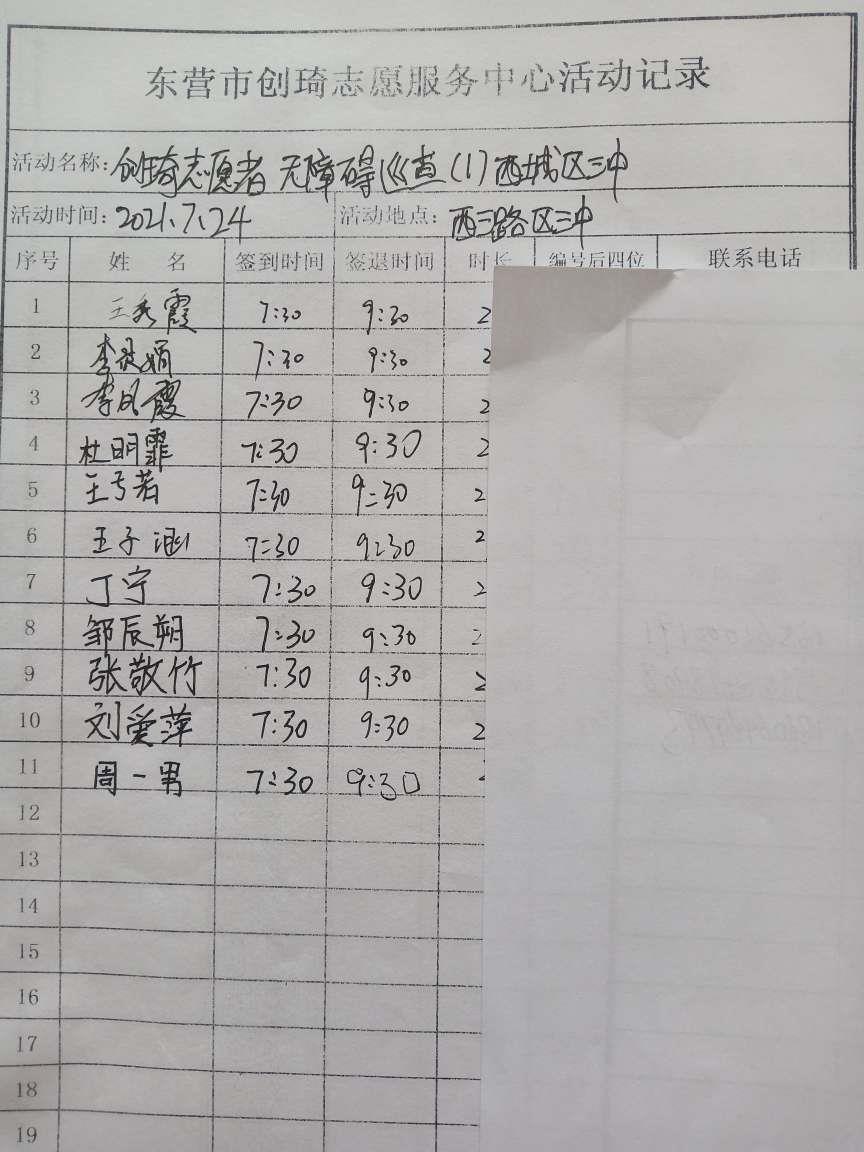 东营市创琦志愿服务中心活动记录
活动名称: 创琦志愿者 无障碍巡查(1)西城区三中
活动时间: 2021.7.24 活动地点: 西三路区三中
序号 姓 名 签到时间 签退时间 时长 编号后四位 联系电话
1 王秀霞 7:30 9:30 2
2 李 娟 7:30 9:30 2
3 李风霞 7:30 9:30 2
4 杜明霏 7:30 9:30 2
5 王 若 7:30 9:30 2
6 王子涵 7:30 9:30 2
7 丁宁 7:30 9:30 2
8 邹辰朔 7:30 9:30 2
9 张敬竹 7:30 9:30 2
10 刘爱萍 7:30 9:30 2
11 周一男 7:30 9:30
12
13
14
15
16
17
18
19